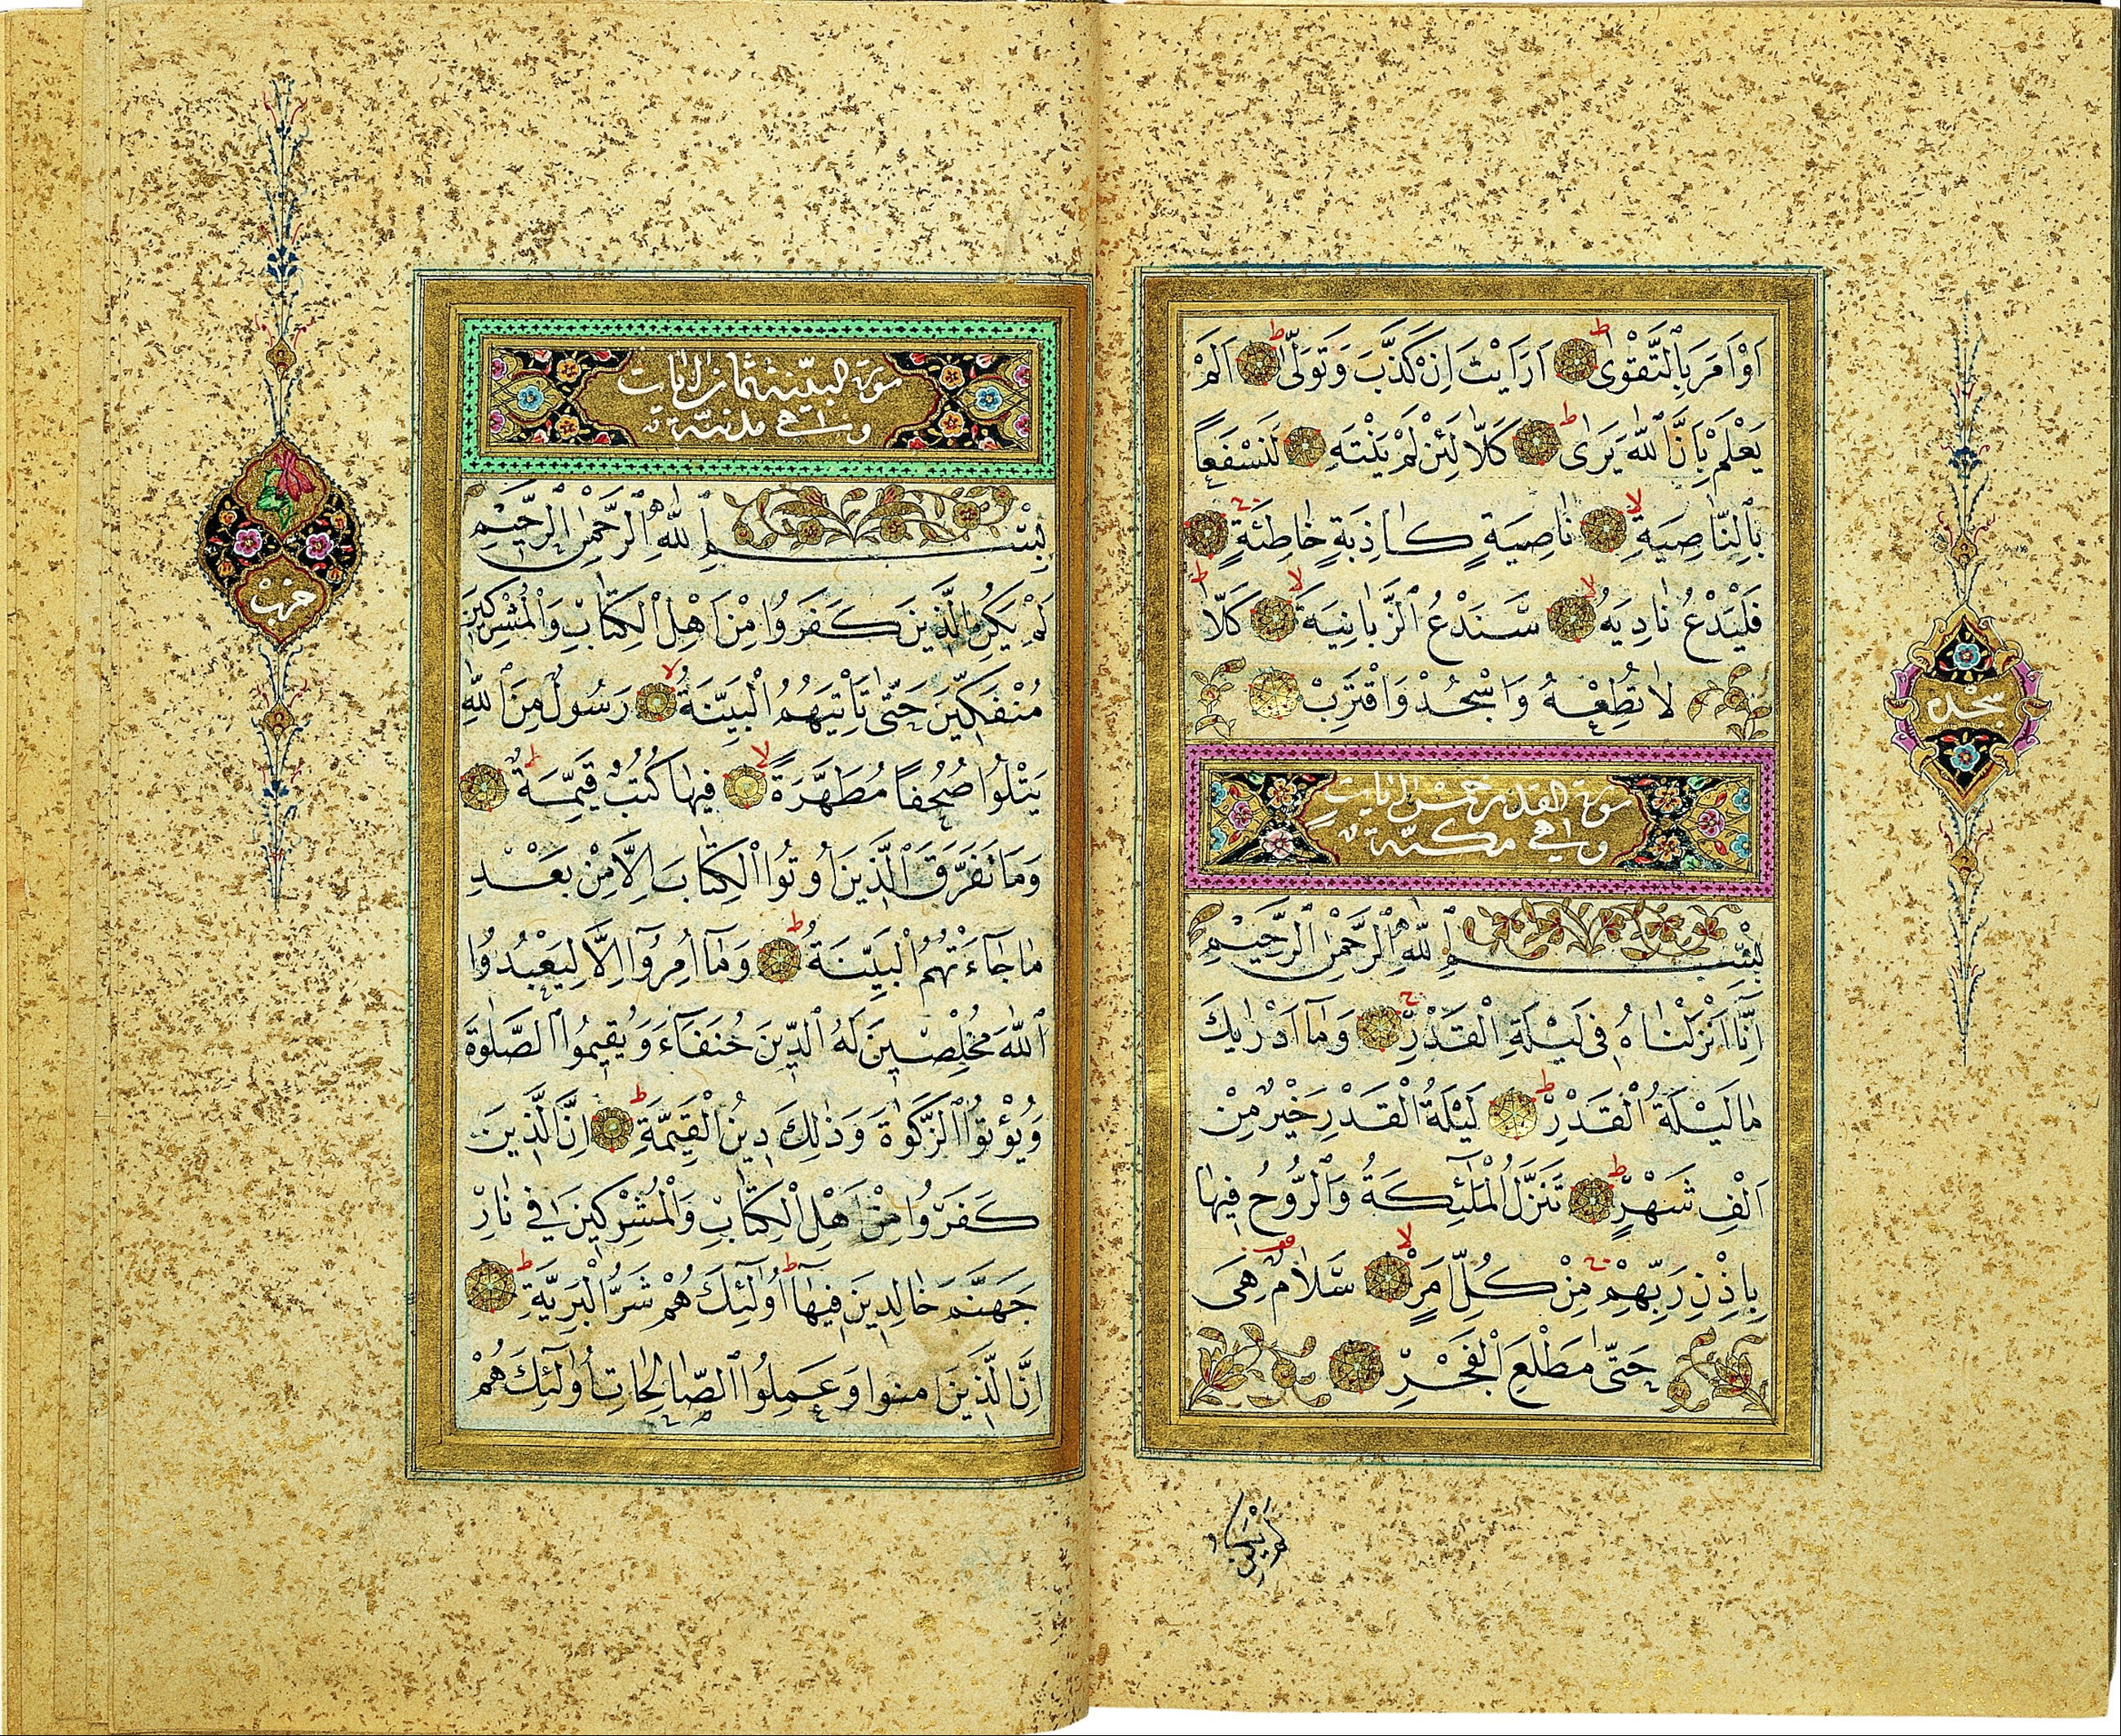 اَوْ اَمَرَ بِالتَّقْوٰى ط اَرَاَيْتَ اِنْ كَذَّبَ وَتَوَلّٰى ط اَلَمْ
يَعْلَمْ بِاَنَّ اللّٰهَ يَرٰى ط كَلَّا لَئِنْ لَمْ يَنْتَهِ لَنَسْفَعًا
بِالنَّاصِيَةِ لا نَاصِيَةٍ كَاذِبَةٍ خَاطِئَةٍ ج
فَلْيَدْعُ نَادِيَهُ لا سَنَدْعُ الزَّبَانِيَةَ لا كَلَّا ط
لَا تُطِعْهُ وَاسْجُدْ وَاقْتَرِبْ
سجده
سورة القدر خمس ايات
وهى مكية
بِسْمِ اللّٰهِ الرَّحْمٰنِ الرَّحِيمِ
اِنَّا اَنْزَلْنَاهُ فِى لَيْلَةِ الْقَدْرِ ج وَمَا اَدْرٰيكَ
مَا لَيْلَةُ الْقَدْرِ ط لَيْلَةُ الْقَدْرِ خَيْرٌ مِنْ
اَلْفِ شَهْرٍ ط تَنَزَّلُ الْمَلٰئِكَةُ وَالرُّوحُ فِيهَا
بِاِذْنِ رَبِّهِمْ مِنْ كُلِّ اَمْرٍ لا سَلَامٌ هِىَ
حَتّٰى مَطْلَعِ الْفَجْرِ
لم يكن
سورة البينة ثمان ايات
وهى مدنية
بِسْمِ اللّٰهِ الرَّحْمٰنِ الرَّحِيمِ
لَمْ يَكُنِ الَّذِينَ كَفَرُوا مِنْ اَهْلِ الْكِتَابِ وَالْمُشْرِكِينَ
مُنْفَكِّينَ حَتّٰى تَاْتِيَهُمُ الْبَيِّنَةُ لا رَسُولٌ مِنَ اللّٰهِ
يَتْلُوا صُحُفًا مُطَهَّرَةً لا فِيهَا كُتُبٌ قَيِّمَةٌ ط
وَمَا تَفَرَّقَ الَّذِينَ اُوتُوا الْكِتَابَ اِلَّا مِنْ بَعْدِ
مَا جَاءَتْهُمُ الْبَيِّنَةُ ط وَمَا اُمِرُوا اِلَّا لِيَعْبُدُوا
اللّٰهَ مُخْلِصِينَ لَهُ الدِّينَ حُنَفَاءَ وَيُقِيمُوا الصَّلٰوةَ
وَيُؤْتُوا الزَّكٰوةَ وَذٰلِكَ دِينُ الْقَيِّمَةِ ط اِنَّ الَّذِينَ
كَفَرُوا مِنْ اَهْلِ الْكِتَابِ وَالْمُشْرِكِينَ فِى نَارِ
جَهَنَّمَ خَالِدِينَ فِيهَا ط اُولٰئِكَ هُمْ شَرُّ الْبَرِيَّةِ ط
اِنَّ الَّذِينَ اٰمنوا وَعَمِلُوا الصَّالِحَاتِ اُولٰئِكَ هُمْ
حزب